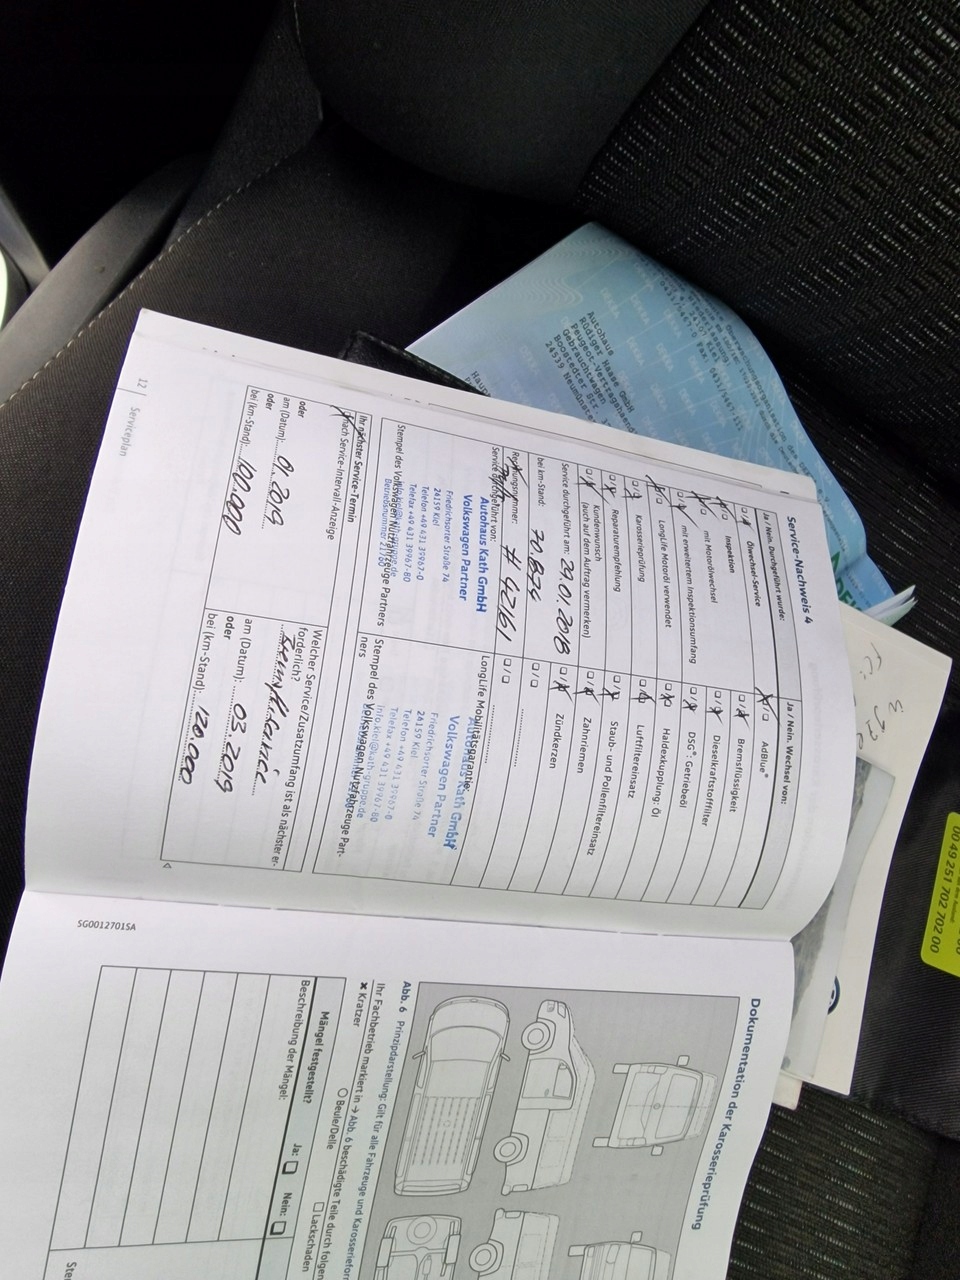 Service-Nachweis 4
Ja / Nein. Durchgeführt wurde:
Ölwechsel-Service
Inspektion
mit Motorölwechsel
mit erweitertem Inspektionsumfang
LongLife Motoröl verwendet
Karosserieprüfung
Reparaturempfehlung
Kundenwunsch
(auch auf dem Auftrag vermerken)
Service durchgeführt am: 29.01.2018
bei km-Stand: 70.874
Rechnungsnummer:
Autohaus Kath GmbH
Volkswagen Partner
Friedrichsorter Straße 74
24159 Kiel
Telefon +49 431 39967-0
Telefax +49 431 39967-80
Stempel des Volkswagen Nutzfahrzeuge Partners
Ja / Nein. Wechsel von:
AdBlue®
Bremsflüssigkeit
Dieselkraftstofffilter
DSG®: Getriebeöl
Haldexkupplung: Öl
Luftfiltereinsatz
Staub- und Pollenfiltereinsatz
Zahnriemen
Zündkerzen
LongLife Mobilitätsgarantie:
Autohaus Kath GmbH
Volkswagen Partner
Friedrichsorter Straße 74
24159 Kiel
Telefon +49 431 39967-0
Telefax +49 431 39967-80
info.kiel@kath-gruppe.de
Stempel des Volkswagen Nutzfahrzeuge Part-
ners
Ihr nächster Service-Termin
nach Service-Intervall-Anzeige
oder
am (Datum): 01.2019
oder
bei (km-Stand): 100.000
Welcher Service/Zusatzumfang ist als nächster er-
forderlich?
am (Datum): 03.2019
oder
bei (km-Stand): 120.000
12 Serviceplan
SG0012701SA
Dokumentation der Karosserieprüfung
Abb. 6 Prinzipdarstellung: Gilt für alle Fahrzeuge und
Ihr Fachbetrieb markiert in → Abb. 6 beschädigte Teile durch
× Kratzer
Beule/Delle
Lackschaden
Mängel festgestellt?
Ja:
Nein:
Beschreibung der Mängel:
Autohaus
Rüdiger Haase GmbH
Peugeot-Vertragshaend
Gebrauchtwagen
Boostedter Str
24539
00 49 251 702 702 00